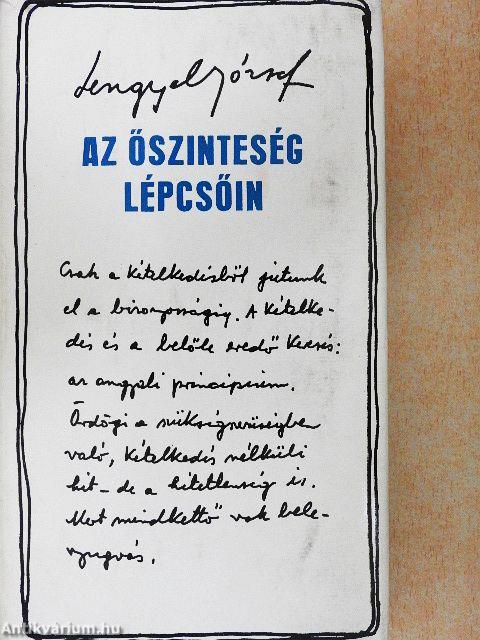 Lengyel József
AZ ŐSZINTESÉG
LÉPCSŐIN
Csak a kételkedésből jutunk
el a bizonyosságig. A kételke-
dés és a belőle eredő keresés:
az angyali principium.
Ördögi a szükségszerűségben
való, kételkedés nélküli
hit – de a hitetlenség is.
Mert mindkettő vak bele-
nyugvás.
Antikvárium.hu